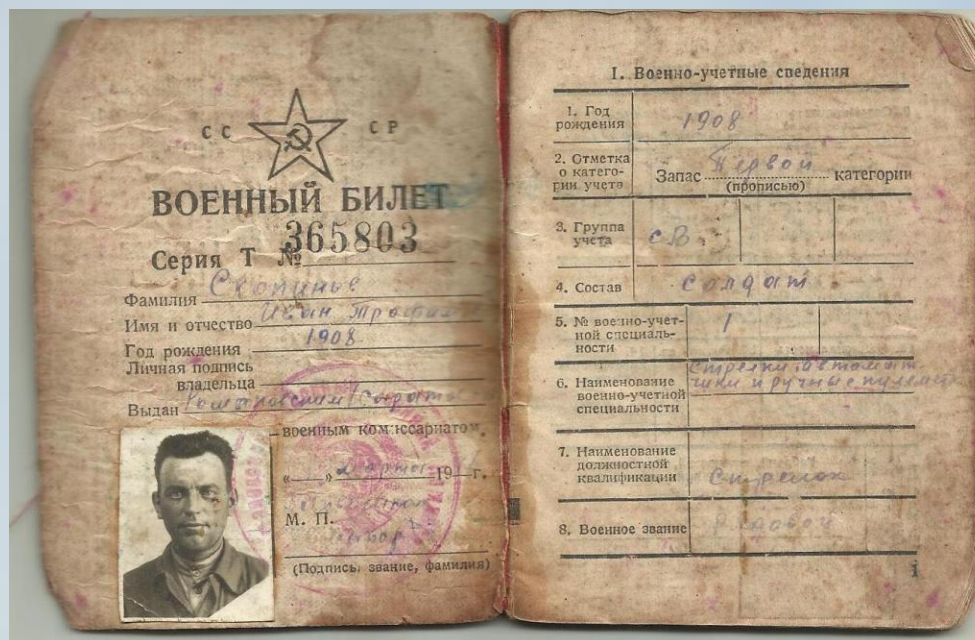 СС СР
ВОЕННЫЙ БИЛЕТ
Серия Т № 365803
Фамилия
Имя и отчество Иван
Год рождения 1908
Личная подпись
владельца
Выдан
военным комиссариатом.
« » марта 19 г.
М. П.
(Подпись, звание, фамилия)
I. Военно-учетные сведения
1. Год
рождения
1908
2. Отметка
о катего-
рии учета
Запас Первой категории
(прописью)
3. Группа
учета
св.
4. Состав
солдат
5. № военно-учет-
ной специаль-
ности
1
6. Наименование
военно-учетной
специальности
стрелки, автомат
чики и ручные пулемет
7. Наименование
должностной
квалификации
Стрелок
8. Военное звание
Рядовой
1